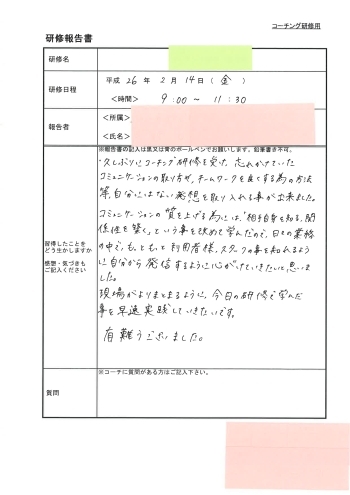 コーチング研修用
研修報告書
研修名
研修日程
平成 26 年 2 月 14 日 ( 金 )
＜時間＞ 9:00 ～ 11:30
報告者
＜所属＞
＜氏名＞
※報告書の記入は黒又は青のボールペンでお願いします。鉛筆書き不可。
習得したことを
どう生かしますか
感想・気づきも
ご記入ください
久しぶりにコーチング研修を受け、忘れかけていた
コミュニケーションの取り方や、チームワークを良くする為の方法
等、自分にはない発想を取り入れる事が出来ました。
コミュニケーションの質を上げる為には、"相手自身を知る、関
係性を築く"という事を改めて学んだので、日々の業務
の中で、もっともっと利用者様、スタッフの事を知れるよう
に自分から発信するように心がけていきたいと思いま
した。
現場がよりまとまるように、今日の研修で学んだ
事を早速実践していきたいです。
有難うございました。
※コーチに質問がある方はご記入下さい。
質問